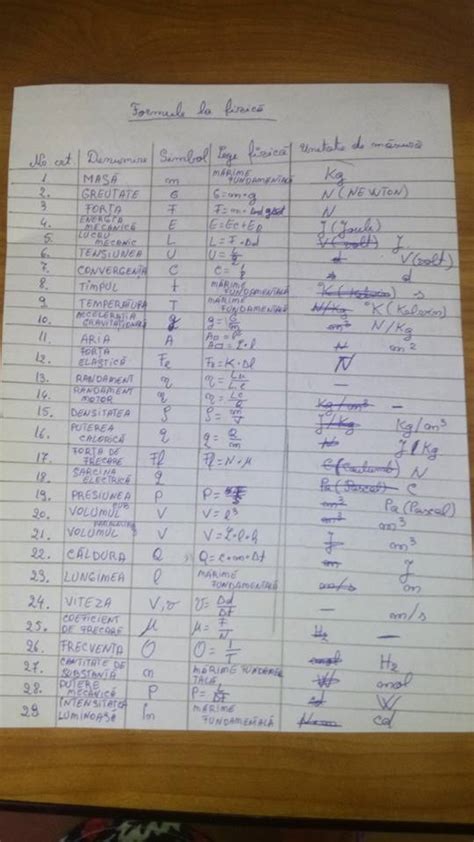 Formule la fizică
No crt. Denumire Simbol Lege fizică Unitate de măsură
1 MASĂ m MĂRIME FUNDAMENTALĂ Kg
2. GREUTATE G G=m·g N (NEWTON)
3 FORȚA F F=m· N
4 ENERGIA MECANICĂ E E=Ec+Ep J (Jouli)
5. LUCRU MECANIC L L=F·Δd V(volt) J
6. TENSIUNEA U U= V(volt)
7. CONVERGENȚA C C=1/f d
8. TIMPUL t MĂRIME FUNDAMENTALĂ °K (Kelvin) s
9 TEMPERATURA T MĂRIME FUNDAMENTALĂ N/Kg °K (Kelvin)
10. ACCELERAȚIA GRAVITAȚIONALĂ g g=G/m m² N/Kg
11. ARIA A m²
12. FORȚA ELASTICĂ Fe Fe=K·Δl N
13. RANDAMENT η η=Lu/Lc —
14. RANDAMENT MOTOR η η= —
15. DENSITATEA ρ ρ=m/V Kg/m³ Kg/m³
16. PUTEREA CALORICĂ q q=Q/m J/Kg J/Kg
17. FORȚA DE FRECARE Ff Ff=N·μ N
18. SARCINA ELECTRICĂ q C(Coulomb)
19. PRESIUNEA P P= Pa(Pascal) C
20 VOLUMUL V V=l³ m³ Pa(Pascal)
21. VOLUMUL V V=L·l·h m³ m³
22. CĂLDURA Q Q=c·m·Δt J
23. LUNGIMEA l MĂRIME FUNDAMENTALĂ m
24. VITEZA V, v v=Δd/Δt m/s m/s
25. COEFICIENT DE FRECARE μ μ=F/N —
26. FRECVENȚA =1/T Hz Hz
27. CANTITATE DE SUBSTANȚĂ n MĂRIME FUNDAMENTALĂ mol mol
28. PUTERE MECANICĂ P P=L/Δt W W
29 INTENSITATEA LUMINOASĂ MĂRIME FUNDAMENTALĂ cd